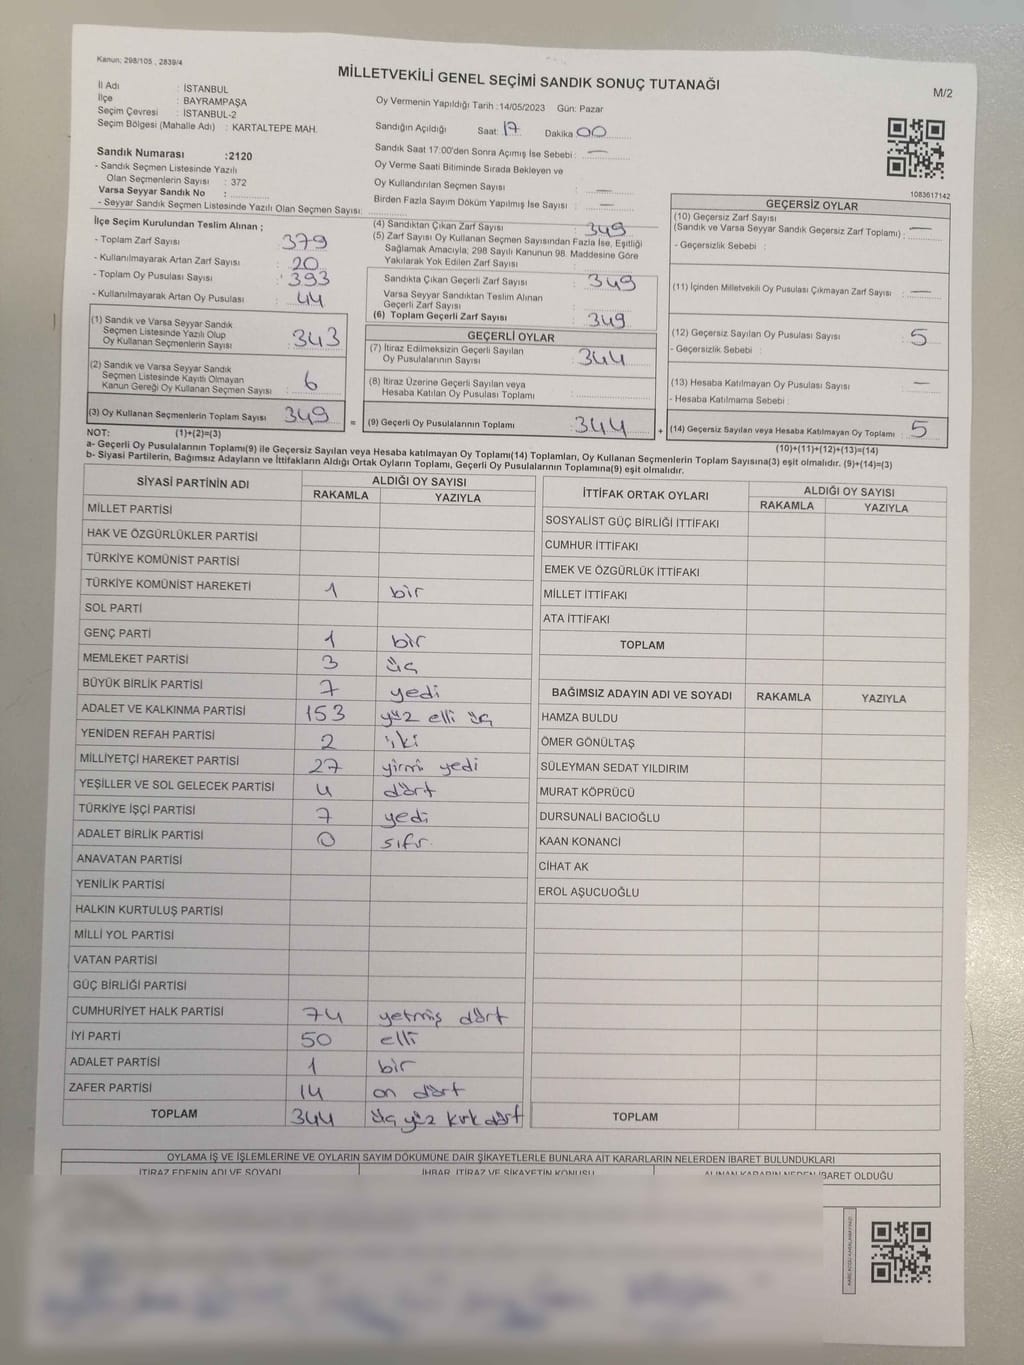 Kanun, 298/105 , 2839/4
MİLLETVEKİLİ GENEL SEÇİMİ SANDIK SONUÇ TUTANAĞI
M/2
İl Adı : İSTANBUL
İlçe : BAYRAMPAŞA
Seçim Çevresi : İSTANBUL-2
Seçim Bölgesi (Mahalle Adı) : KARTALTEPE MAH.
Oy Vermenin Yapıldığı Tarih :14/05/2023 Gün: Pazar
Sandığın Açıldığı Saat: 17 Dakika 00
Sandık Saat 17:00'den Sonra Açımış İse Sebebi : —
Oy Verme Saati Bitiminde Sırada Bekleyen ve
Oy Kullandırılan Seçmen Sayısı : —
Birden Fazla Sayım Döküm Yapılmış İse Sayısı : —
1083617142
Sandık Numarası :2120
- Sandık Seçmen Listesinde Yazılı
Olan Seçmenlerin Sayısı : 372
Varsa Seyyar Sandık No :
- Seyyar Sandık Seçmen Listesinde Yazılı Olan Seçmen Sayısı:
İlçe Seçim Kurulundan Teslim Alınan ;
- Toplam Zarf Sayısı : 379
- Kullanılmayarak Artan Zarf Sayısı : 20
- Toplam Oy Pusulası Sayısı : 393
- Kullanılmayarak Artan Oy Pusulası : 44
(1) Sandık ve Varsa Seyyar Sandık
Seçmen Listesinde Yazılı Olup
Oy Kullanan Seçmenlerin Sayısı : 343
(2) Sandık ve Varsa Seyyar Sandık
Seçmen Listesinde Kayıtlı Olmayan
Kanun Gereği Oy Kullanan Seçmen Sayısı : 6
(3) Oy Kullanan Seçmenlerin Toplam Sayısı 349 =
(4) Sandıktan Çıkan Zarf Sayısı : 349
(5) Zarf Sayısı Oy Kullanan Seçmen Sayısından Fazla İse, Eşitliği
Sağlamak Amacıyla, 298 Sayılı Kanunun 98. Maddesine Göre
Yakılarak Yok Edilen Zarf Sayısı :
Sandıkta Çıkan Geçerli Zarf Sayısı : 349
Varsa Seyyar Sandıktan Teslim Alınan
Geçerli Zarf Sayısı :
(6) Toplam Geçerli Zarf Sayısı : 349
GEÇERLİ OYLAR
(7) İtiraz Edilmeksizin Geçerli Sayılan
Oy Pusulalarının Sayısı : 344
(8) İtiraz Üzerine Geçerli Sayılan veya
Hesaba Katılan Oy Pusulası Toplamı :
(9) Geçerli Oy Pusulalarının Toplamı : 344 +
GEÇERSİZ OYLAR
(10) Geçersiz Zarf Sayısı
(Sandık ve Varsa Seyyar Sandık Geçersiz Zarf Toplamı) : —
- Geçersizlik Sebebi :
(11) İçinden Milletvekili Oy Pusulası Çıkmayan Zarf Sayısı : —
(12) Geçersiz Sayılan Oy Pusulası Sayısı : 5
- Geçersizlik Sebebi :
(13) Hesaba Katılmayan Oy Pusulası Sayısı : —
- Hesaba Katılmama Sebebi :
(14) Geçersiz Sayılan veya Hesaba Katılmayan Oy Toplamı : 5
NOT: (1)+(2)=(3)
(10)+(11)+(12)+(13)=(14)
a- Geçerli Oy Pusulalarının Toplamı(9) ile Geçersiz Sayılan veya Hesaba katılmayan Oy Toplamı(14) Toplamları, Oy Kullanan Seçmenlerin Toplam Sayısına(3) eşit olmalıdır. (9)+(14)=(3)
b- Siyasi Partilerin, Bağımsız Adayların ve İttifakların Aldığı Ortak Oyların Toplamı, Geçerli Oy Pusulalarının Toplamına(9) eşit olmalıdır.
SİYASİ PARTİNİN ADI ALDIĞI OY SAYISI
RAKAMLA YAZIYLA
MİLLET PARTİSİ
HAK VE ÖZGÜRLÜKLER PARTİSİ
TÜRKİYE KOMÜNİST PARTİSİ
TÜRKİYE KOMÜNİST HAREKETİ 1 bir
SOL PARTİ
GENÇ PARTİ 1 bir
MEMLEKET PARTİSİ 3 üç
BÜYÜK BİRLİK PARTİSİ 7 yedi
ADALET VE KALKINMA PARTİSİ 153 yüz elli üç
YENİDEN REFAH PARTİSİ 2 iki
MİLLİYETÇİ HAREKET PARTİSİ 27 yirmi yedi
YEŞİLLER VE SOL GELECEK PARTİSİ 4 dört
TÜRKİYE İŞÇİ PARTİSİ 7 yedi
ADALET BİRLİK PARTİSİ 0 sıfır
ANAVATAN PARTİSİ
YENİLİK PARTİSİ
HALKIN KURTULUŞ PARTİSİ
MİLLİ YOL PARTİSİ
VATAN PARTİSİ
GÜÇ BİRLİĞİ PARTİSİ
CUMHURİYET HALK PARTİSİ 74 yetmiş dört
İYİ PARTİ 50 elli
ADALET PARTİSİ 1 bir
ZAFER PARTİSİ 14 on dört
TOPLAM 344 üç yüz kırk dört
İTTİFAK ORTAK OYLARI ALDIĞI OY SAYISI
RAKAMLA YAZIYLA
SOSYALİST GÜÇ BİRLİĞİ İTTİFAKI
CUMHUR İTTİFAKI
EMEK VE ÖZGÜRLÜK İTTİFAKI
MİLLET İTTİFAKI
ATA İTTİFAKI
TOPLAM
BAĞIMSIZ ADAYIN ADI VE SOYADI RAKAMLA YAZIYLA
HAMZA BULDU
ÖMER GÖNÜLTAŞ
SÜLEYMAN SEDAT YILDIRIM
MURAT KÖPRÜCÜ
DURSUNALİ BACIOĞLU
KAAN KONANCİ
CİHAT AK
EROL AŞUCUOĞLU
TOPLAM
OYLAMA İŞ VE İŞLEMLERİNE VE OYLARIN SAYIM DÖKÜMÜNE DAİR ŞİKAYETLERLE BUNLARA AİT KARARLARIN NELERDEN İBARET BULUNDUKLARI
İTİRAZ EDENİN ADI VE SOYADI İHBAR, İTİRAZ VE ŞİKAYETİN KONUSU ALINAN KARARIN NEDEN İBARET OLDUĞU